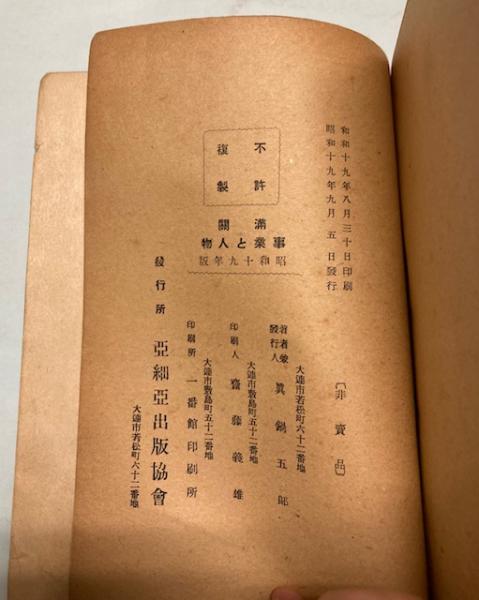 和和十九年八月三十日印刷
昭和十九年九月五日發行
〔非賣品〕
不許
複製
滿
關
事業と人物
昭和十九年版
大連市若松町六十二番地
著者兼
發行人
眞鍋五郎
大連市敷島町五十二番地
印刷人 齋藤義雄
大連市敷島町五十二番地
印刷所 一番館印刷所
發行所 亞細亞出版協會
大連市若松町六十二番地